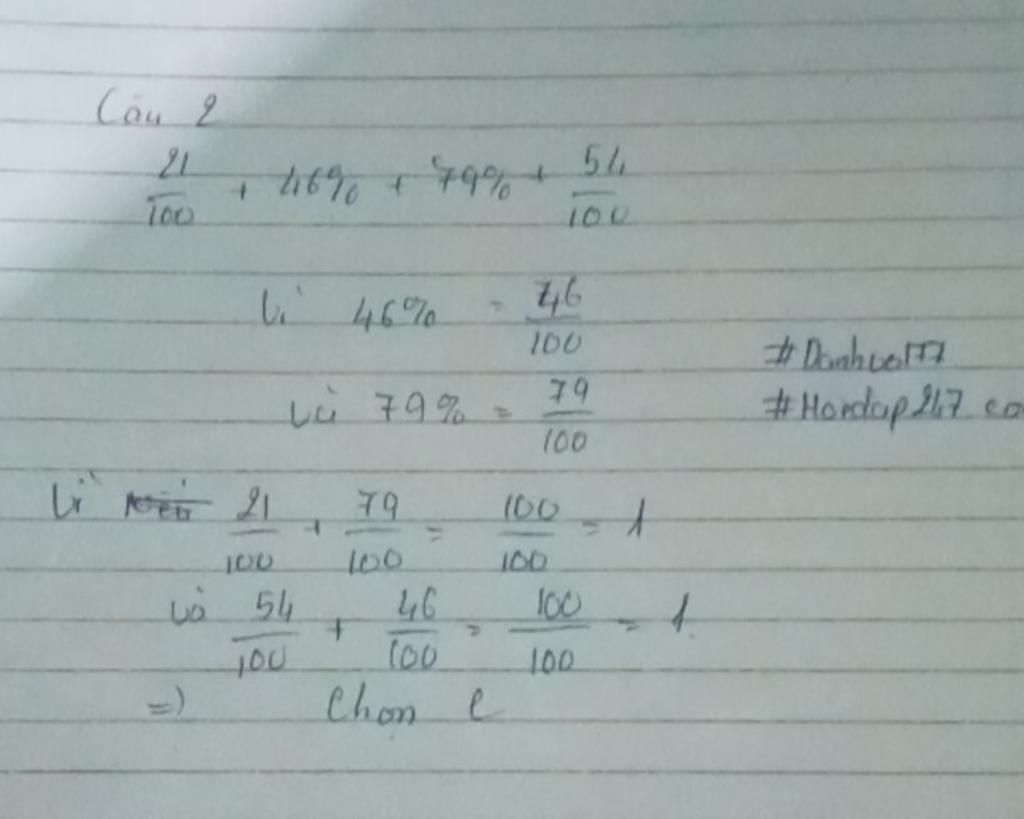 Câu 2
21/100 + 46% + 79% + 54/100
Vì 46% = 46/100
và 79% = 79/100
#Hoidap247 co
Vì 21/100 + 79/100 = 100/100 = 1
và 54/100 + 46/100 = 100/100 = 1.
=) Chọn C